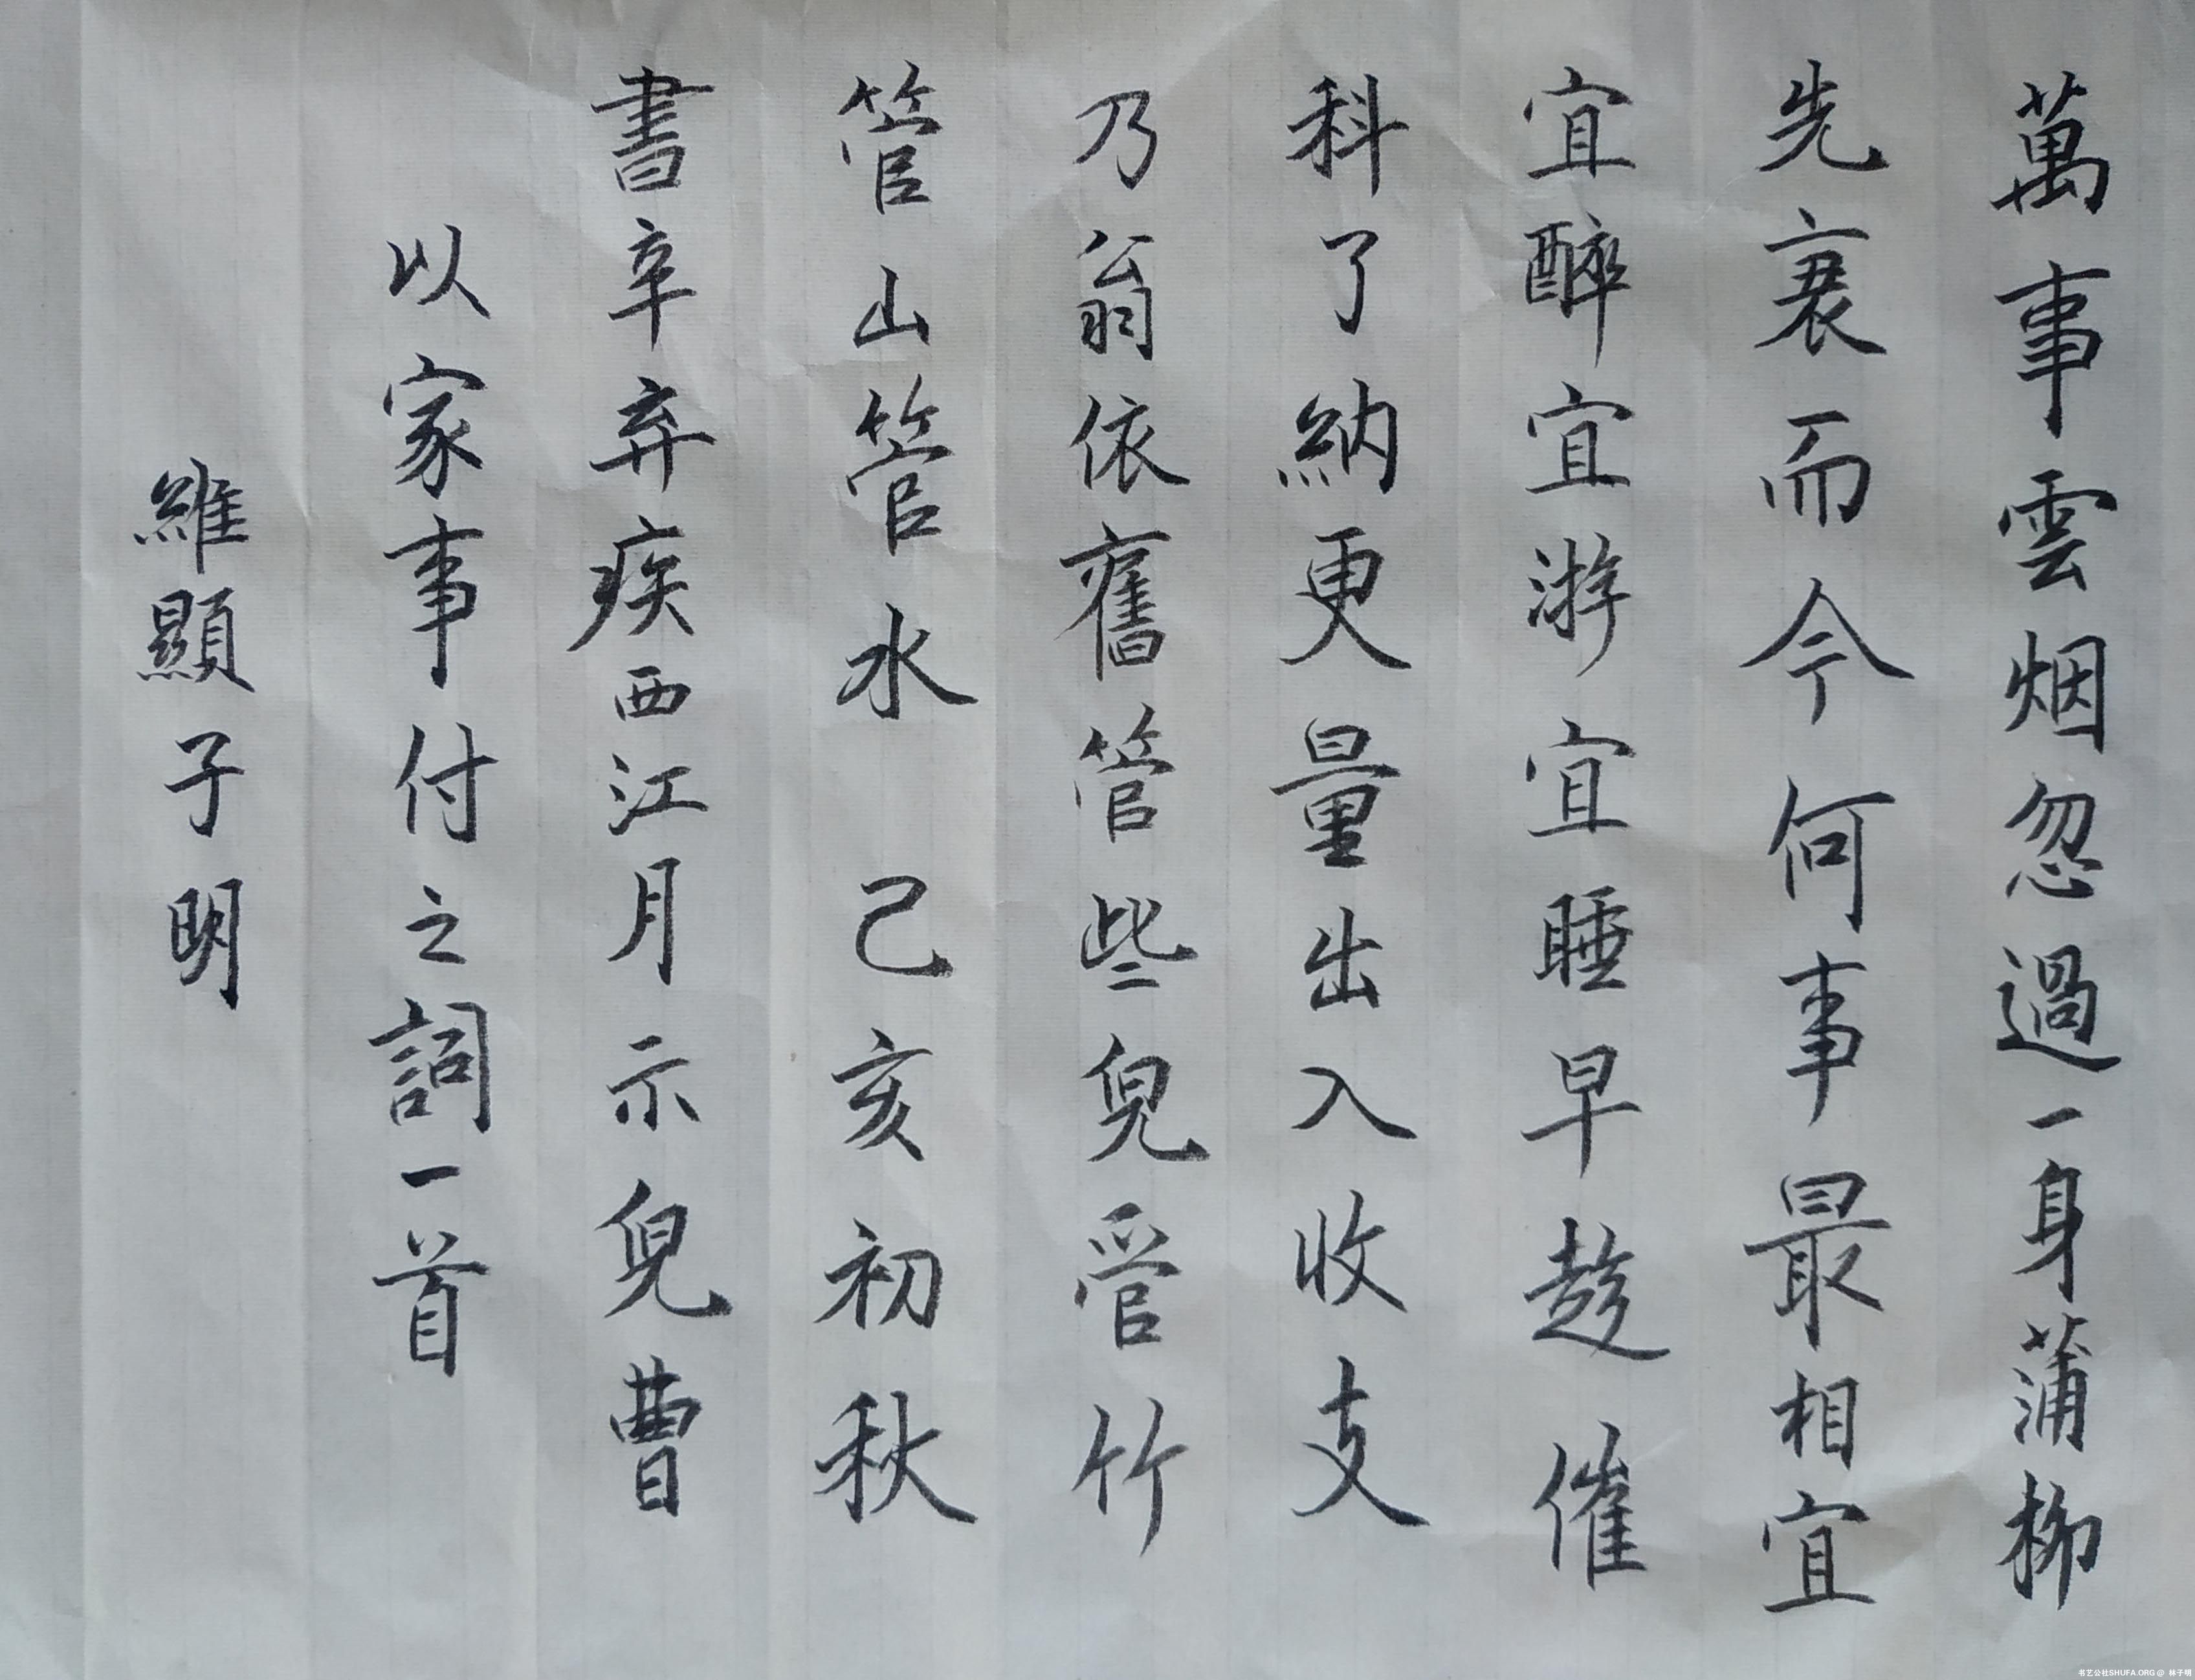 萬事雲烟忽過一身蒲柳
先衰而今何事最相宜
宜醉宜游宜睡早趁催
科了納更量出入收支
乃翁依舊管些兒管竹
管山管水 己亥初秋
書辛弃疾西江月示兒曹
以家事付之詞一首
維顯子明
书艺公社SHUFA.ORG @ 林子明